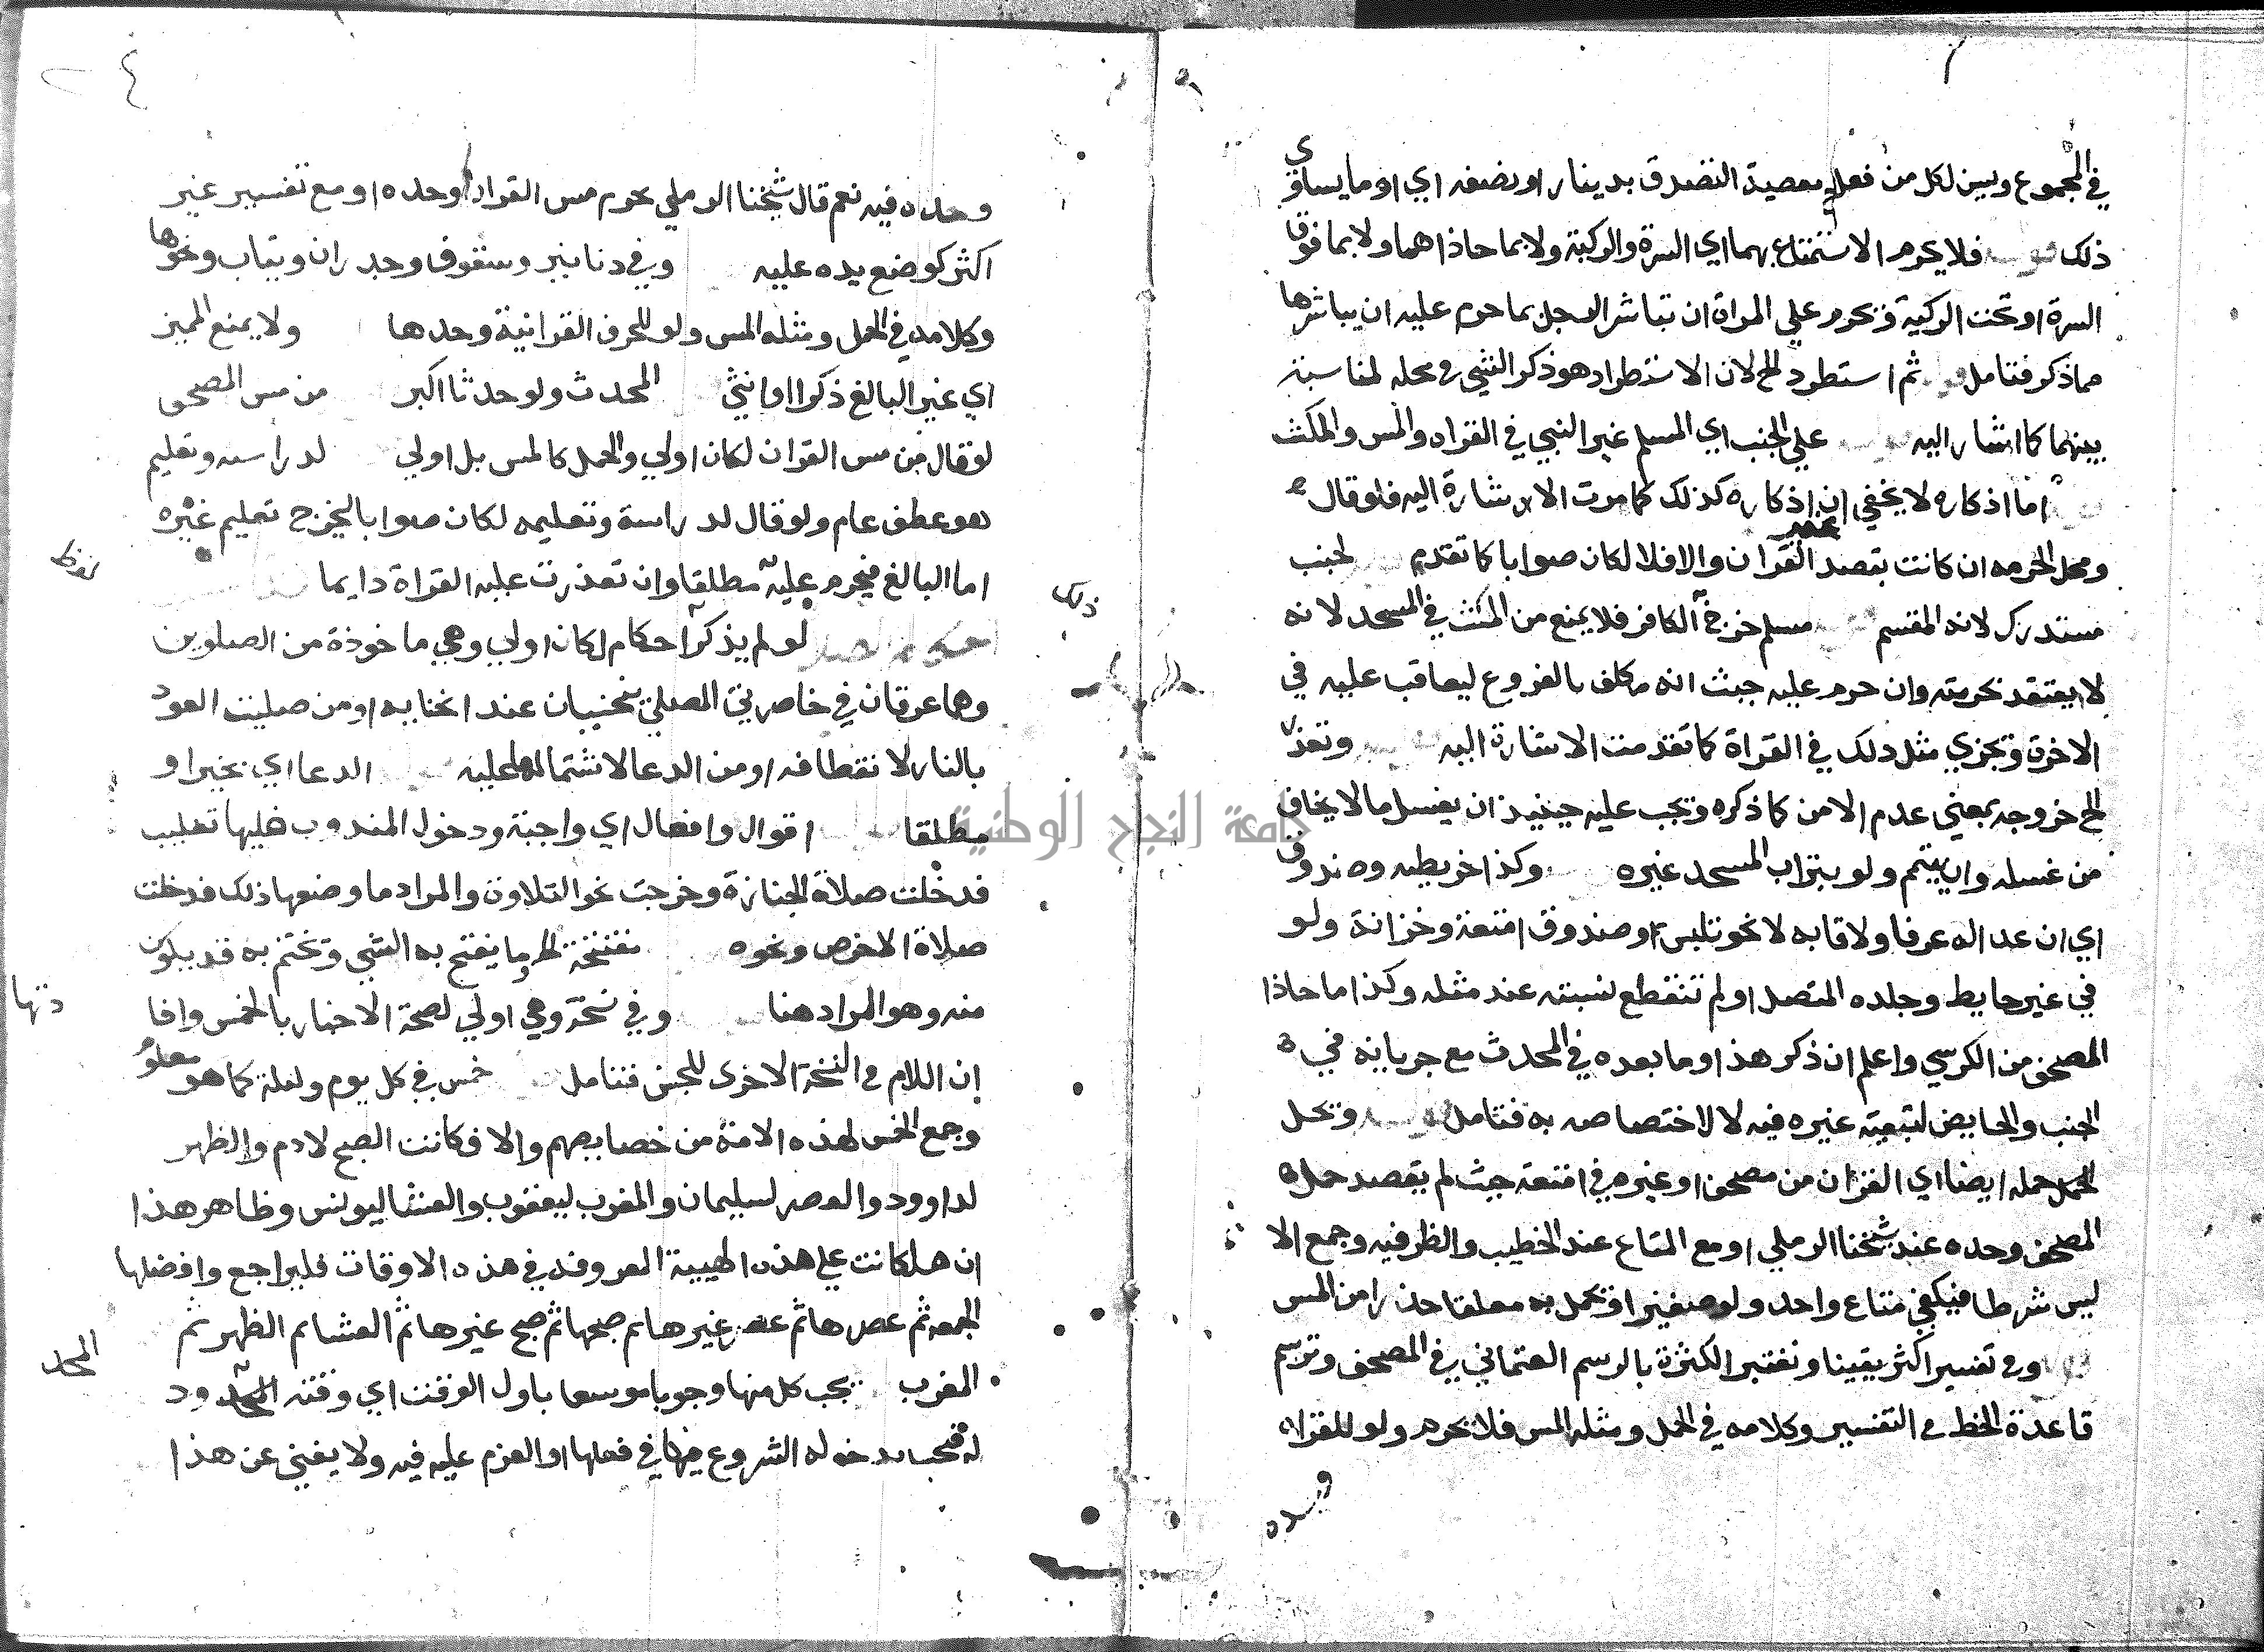 في المجموع ويسن لكل من فعل معصية التصدق بدينار او نصفه اي او ما يساوي
ذلك فلا يحرم الاستمتاع بهما اي السرة والركبة ولا بما حاذاهما ولا بما فوق
السرة او تحت الركبة ويحرم علي المراة ان تباشر الرجل بما حرم عليه ان يباشرها
مما ذكر فتامل ثم استطرد الخ لان الاستطراد هو ذكر الشي في محله لمناسبة
بينهما كما اشار اليه علي الجنب اي المسلم غير النبي في القراه والمس والمكث
اما اذكاره لا يخفي ان اذكاره كذلك كما مرت الاشارة اليه فلو قال
ومحل الحرمه ان كانت بقصد القران والا فلا لكان صوابا كما تقدم لجنب
مستدرك لانه المقسم مسلم خرج الكافر فلا يمنع من المكث في المسجد لانه
لا يعتقد حرمته وان حرم عليه حيث انه مكلف بالفروع ليعاقب عليه في
الاخرة ويجزي مثل ذلك في القراة كما تقدمت الاشارة اليه وتعذر
الخ خروجه بمعني عدم الامن كما ذكره ويجب عليه حينيذ ان يغسل ما لا يخاف
من غسله وان يتيمم ولو بتراب المسجد غيره وكذا خريطه وصندوق
اي ان عدا له عرفا ولاقا به لا نحو تليس او صندوق امتعة وخزانة ولو
في غير حايط وجلده المتصل او لم تنقطع نسبته عند مثله وكذا ما حاذا
المصحف من الكرسي واعلم ان ذكر هذا وما بعده في المحدث مع جريانه في
الجنب والحايض لتبعية غيره فيه لا لاختصاص به فتامل ويحل
الحمل حمله ايضا اي القران من مصحف او غيره في امتعة حيث لم يقصد حمل
المصحف وحده عند شيخنا الرملي او مع المتاع عند الخطيب والظرفيه وجمع الا
ليس شرطا فيكفي متاع واحد ولو صغيرا ويحمل به معلقا حذرا من المس
وفي تفسير اكثر يقينا وتعتبر الكثرة بالرسم العثماني في المصحف وترسم
قاعدة الخط في التفسير وكلامه في الحمل ومثله المس فلا يحرم ولو للقران
وحده فيه نعم قال شيخنا الرملي يحرم مس القران وحده او مع تفسير غير
اكثر كوضع يده عليه وفي دنانير وسقوف وجدران وثياب ونحوها
وكلامه في الحمل ومثله المس ولو للحرف القرانية وحدها ولا يمنع المميز
اي غير البالغ ذكرا او انثي المحدث ولو حدثا اكبر من مس المصحف
لو قال من مس القران لكان اولي والحمل كالمس بل اولي لدراسه وتعليم
هو عطف عام ولو قال لدراسة وتعليمه لكان صوابا ليخرج تعليم غيره
اما البالغ فيحرم عليه مطلقا وان تعذرت عليه القراة دايما
لو لم يذكر احكام لكان اولي وهي ماخوذة من الصلوين
لفظ
وهما عرقان في خاصرتي المصلي ينحنيان عند انحنايه او من صليت العود
بالنار لانعطافه او من الدعا لاشتمالها عليه الدعا اي بخير او
مطلقا اقوال وافعال اي واجبة ودخول المندوب فيها تغليب
فدخلت صلاة الجنازة وخرجت نحو التلاوة والمراد ما وضعها ذلك فدخلت
صلاة الاخرص ونحوه مفتتحة الخ وما يفتتح به الشي وتختم به قد يكون
منه وهو المراد هنا وفي نسخة وهي اولي لصحة الاخبار بالخمس وافا
دتها
ان اللام في النسخة الاخرى للجنس فتامل خمس في كل يوم وليلة كما هو معلوم
وجمع الخمس لهذه الامة من خصايصهم والا فكانت الصبح لادم والظهر
لداوود والعصر لسليمان والمغرب ليعقوب والعشا ليونس وظاهر هذا
ان هل كانت علي هذه الهيية المعروفه في هذه الاوقات فليراجع وافضلها
الجمعه ثم عصرها ثم عصر غيرها ثم صبحها ثم صبح غيرها ثم العشا ثم الظهر ثم
المغرب يجب كل منها وجوبا موسعا باول الوقت اي وقته المحدود
المحد
له فيجب بدخوله الشروع فيها في فعلها او العزم عليه فيه ولا يغني عن هذا
جامعة النجاح الوطنية